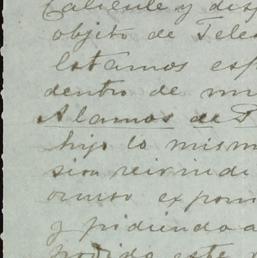 Caliente y dis
objeto de Tele
Estamos esp
dentro de mu
Alamos de P
hijo lo mism
sion reivindi
omiso expon
y pidiendo a
podido este